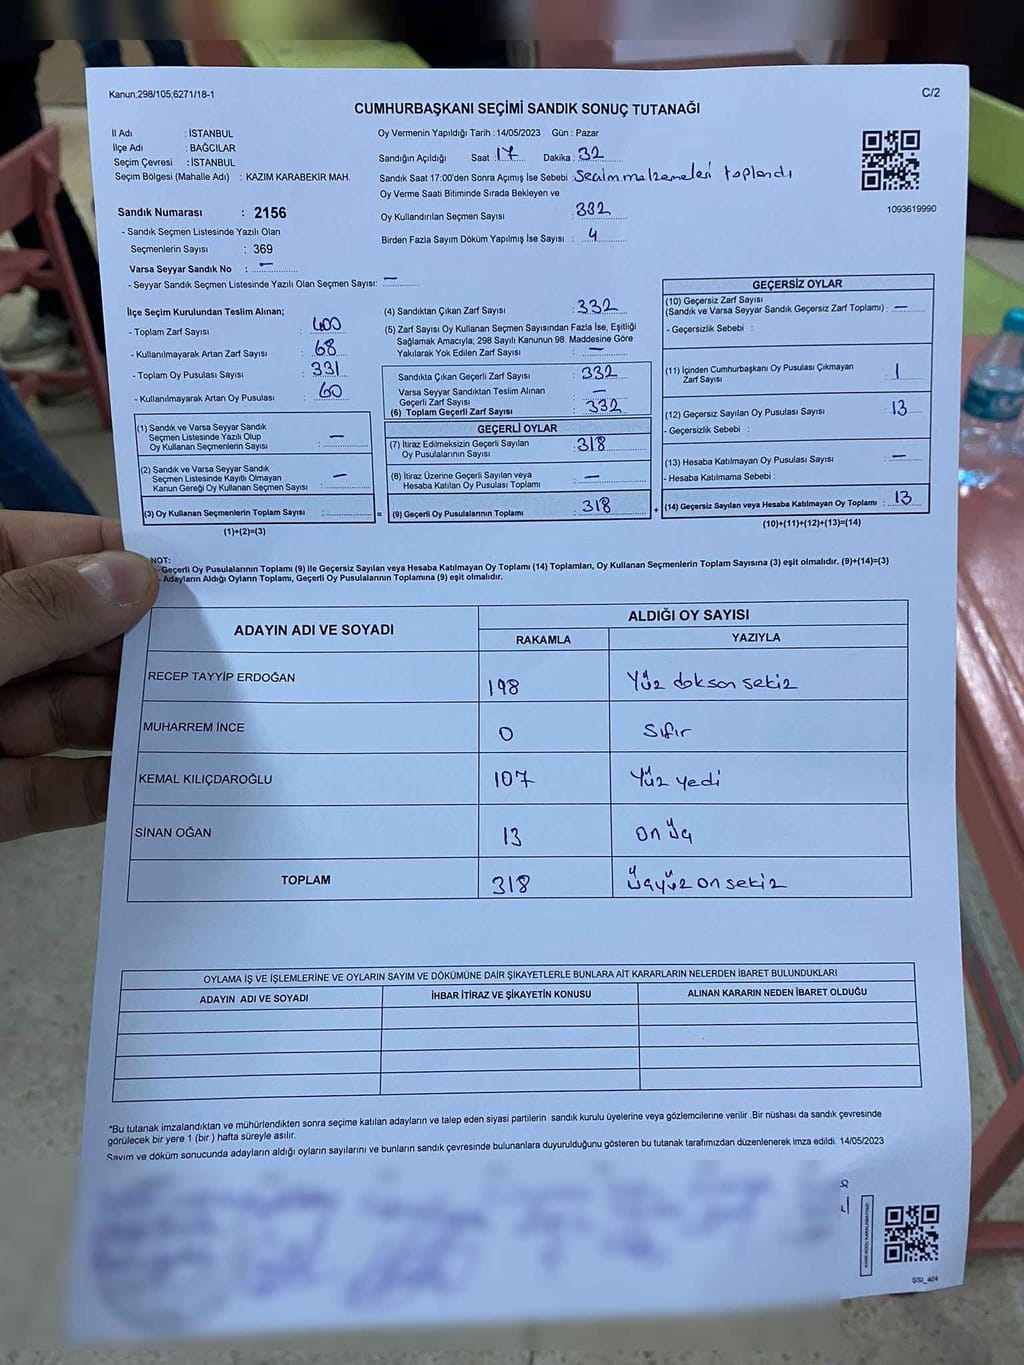 Kanun:298/105,6271/18-1
C/2
CUMHURBAŞKANI SEÇİMİ SANDIK SONUÇ TUTANAĞI
İl Adı : İSTANBUL
İlçe Adı : BAĞCILAR
Seçim Çevresi : İSTANBUL
Seçim Bölgesi (Mahalle Adı) : KAZIM KARABEKİR MAH.
Oy Vermenin Yapıldığı Tarih : 14/05/2023 Gün : Pazar
Sandığın Açıldığı Saat : 17 Dakika : 32
Sandık Saat 17:00'den Sonra Açımış İse Sebebi : Seçim malzemeleri toplandı
Oy Verme Saati Bitiminde Sırada Bekleyen ve
Oy Kullandırılan Seçmen Sayısı : 332
Birden Fazla Sayım Döküm Yapılmış İse Sayısı : 4
1093619990
Sandık Numarası : 2156
- Sandık Seçmen Listesinde Yazılı Olan
Seçmenlerin Sayısı : 369
Varsa Seyyar Sandık No : —
- Seyyar Sandık Seçmen Listesinde Yazılı Olan Seçmen Sayısı: —
İlçe Seçim Kurulundan Teslim Alınan;
- Toplam Zarf Sayısı : 400
- Kullanılmayarak Artan Zarf Sayısı : 68
- Toplam Oy Pusulası Sayısı : 331
- Kullanılmayarak Artan Oy Pusulası : 60
(1) Sandık ve Varsa Seyyar Sandık
Seçmen Listesinde Yazılı Olup
Oy Kullanan Seçmenlerin Sayısı : —
(2) Sandık ve Varsa Seyyar Sandık
Seçmen Listesinde Kayıtlı Olmayan
Kanun Gereği Oy Kullanan Seçmen Sayısı : —
(3) Oy Kullanan Seçmenlerin Toplam Sayısı :
(1)+(2)=(3)
(4) Sandıktan Çıkan Zarf Sayısı : 332
(5) Zarf Sayısı Oy Kullanan Seçmen Sayısından Fazla İse, Eşitliği
Sağlamak Amacıyla; 298 Sayılı Kanunun 98. Maddesine Göre
Yakılarak Yok Edilen Zarf Sayısı : —
Sandıkta Çıkan Geçerli Zarf Sayısı : 332
Varsa Seyyar Sandıktan Teslim Alınan
Geçerli Zarf Sayısı
(6) Toplam Geçerli Zarf Sayısı : 332
GEÇERLİ OYLAR
(7) İtiraz Edilmeksizin Geçerli Sayılan
Oy Pusulalarının Sayısı : 318
(8) İtiraz Üzerine Geçerli Sayılan veya
Hesaba Katılan Oy Pusulası Toplamı : —
= (9) Geçerli Oy Pusulalarının Toplamı : 318 +
GEÇERSİZ OYLAR
(10) Geçersiz Zarf Sayısı
(Sandık ve Varsa Seyyar Sandık Geçersiz Zarf Toplamı) : —
- Geçersizlik Sebebi :
(11) İçinden Cumhurbaşkanı Oy Pusulası Çıkmayan
Zarf Sayısı : 1
(12) Geçersiz Sayılan Oy Pusulası Sayısı : 13
- Geçersizlik Sebebi :
(13) Hesaba Katılmayan Oy Pusulası Sayısı : —
- Hesaba Katılmama Sebebi :
(14) Geçersiz Sayılan veya Hesaba Katılmayan Oy Toplamı : 13
(10)+(11)+(12)+(13)=(14)
NOT:
- Geçerli Oy Pusulalarının Toplamı (9) ile Geçersiz Sayılan veya Hesaba Katılmayan Oy Toplamı (14) Toplamları, Oy Kullanan Seçmenlerin Toplam Sayısına (3) eşit olmalıdır. (9)+(14)=(3)
- Adayların Aldığı Oyların Toplamı, Geçerli Oy Pusulalarının Toplamına (9) eşit olmalıdır.
ADAYIN ADI VE SOYADI
ALDIĞI OY SAYISI
RAKAMLA YAZIYLA
RECEP TAYYİP ERDOĞAN 198 Yüz doksan sekiz
MUHARREM İNCE 0 Sıfır
KEMAL KILIÇDAROĞLU 107 Yüz yedi
SİNAN OĞAN 13 on üç
TOPLAM 318 üçyüz on sekiz
OYLAMA İŞ VE İŞLEMLERİNE VE OYLARIN SAYIM VE DÖKÜMÜNE DAİR ŞİKAYETLERLE BUNLARA AİT KARARLARIN NELERDEN İBARET BULUNDUKLARI
ADAYIN ADI VE SOYADI İHBAR İTİRAZ VE ŞİKAYETİN KONUSU ALINAN KARARIN NEDEN İBARET OLDUĞU
*Bu tutanak imzalandıktan ve mühürlendikten sonra seçime katılan adayların ve talep eden siyasi partilerin sandık kurulu üyelerine veya gözlemcilerine verilir .Bir nüshası da sandık çevresinde
görülecek bir yere 1 (bir ) hafta süreyle asılır.
Sayım ve döküm sonucunda adayların aldığı oyların sayılarını ve bunların sandık çevresinde bulunanlara duyurulduğunu gösteren bu tutanak tarafımızdan düzenlenerek imza edildi. 14/05/2023
SSI_404